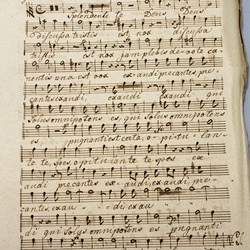 Splendente Deus Deus
discussa tristis est nox discussa
tristis est nox plens plebis devote ca
nentis una est vox exaudi precantes, pre-
cantes exaudi exaudi exaudi qui
Solus omnipotens es, qui Solus omnipotens
es, pugnanti est cita, opitulan-
te te, spes opitulante te spes ex
audi precantes exaudi, exaudi, pre-
cantes, exau - - di exau
di qui Solus omnipotens es pugnanti